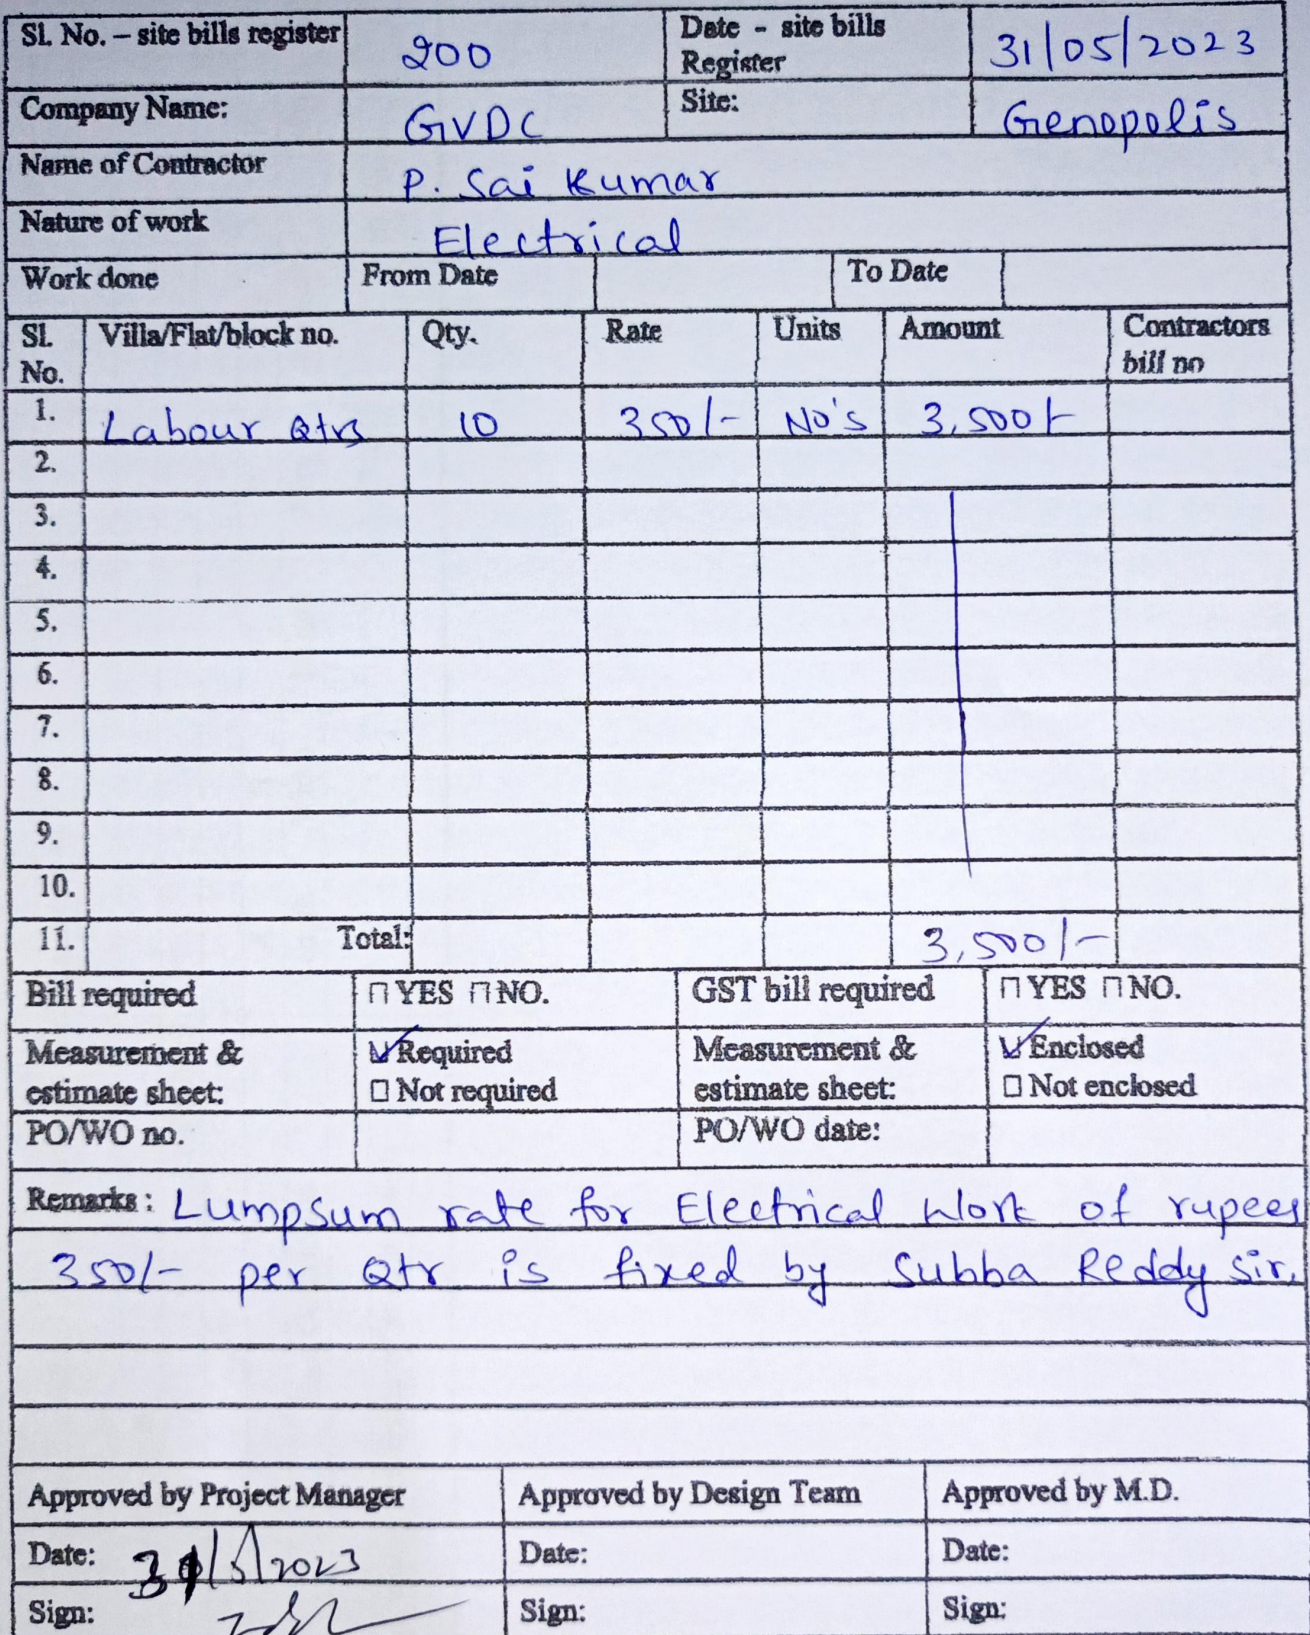 Sl. No. – site bills register 200 Date - site bills Register 31/05/2023
Company Name: GVDC Site: Genopolis
Name of Contractor P. Sai Kumar
Nature of work Electrical
Work done From Date To Date
Sl. No. Villa/Flat/block no. Qty. Rate Units Amount Contractors bill no
1. Labour Qtrs 10 350/- No's 3,500/-
2.
3.
4.
5.
6.
7.
8.
9.
10.
11. Total: 3,500/-
Bill required YES NO. GST bill required YES NO.
Measurement & estimate sheet: Required Measurement & estimate sheet: Enclosed
Not required Not enclosed
PO/WO no. PO/WO date:
Remarks : Lumpsum rate for Electrical Work of rupees
350/- per Qtr is fixed by Subba Reddy sir.
Approved by Project Manager Approved by Design Team Approved by M.D.
Date: 31/5/2023 Date: Date:
Sign: Sign: Sign: